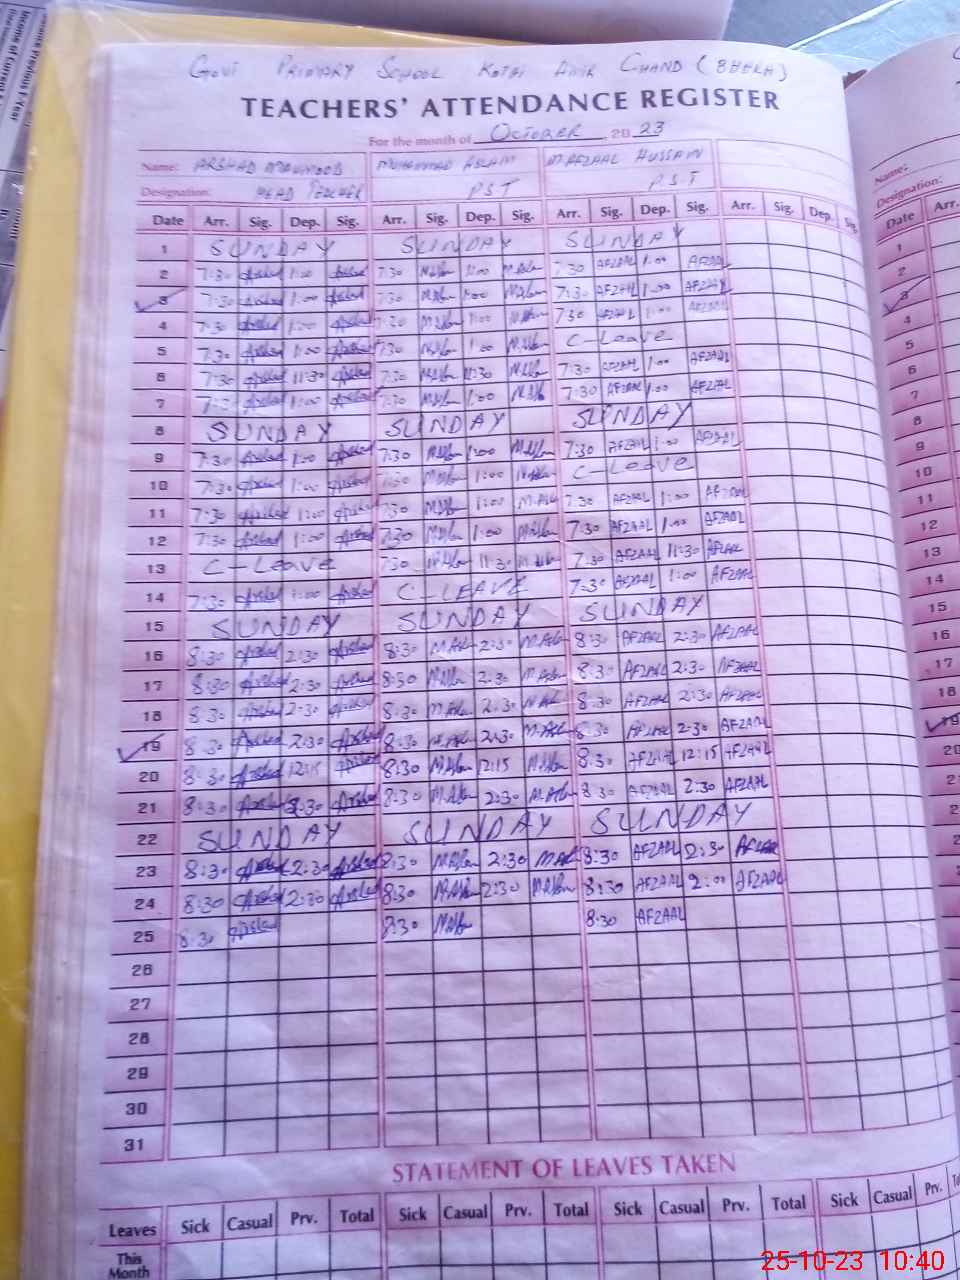 GOVT PRIMARY SCHOOL KOTHI AMIR CHAND (BHERA)
TEACHERS' ATTENDANCE REGISTER
For the month of OCTOBER 2023
Name: ARSHAD MAHMOOD MUHAMMAD ASLAM M. AFZAAL HUSSAIN
Designation: HEAD TEACHER PST PST
Date Arr. Sig. Dep. Sig. Arr. Sig. Dep. Sig. Arr. Sig. Dep. Sig. Arr. Sig. Dep. Sig.
1 SUNDAY SUNDAY SUNDAY
2 7:30 Arshad 1:00 Arshad 7:30 M.Aslam 1:00 M.Aslam 7:30 AFZAAL 1:00 AFZAAL
3 7:30 Arshad 1:00 Arshad 7:30 M.Aslam 1:00 M.Aslam 7:30 AFZAAL 1:00 AFZAAL
4 7:30 Arshad 1:00 Arshad 7:30 M.Aslam 1:00 M.Aslam 7:30 AFZAAL 1:00 AFZAAL
5 7:30 Arshad 1:00 Arshad 7:30 M.Aslam 1:00 M.Aslam C-Leave
6 7:30 Arshad 11:30 Arshad 7:30 M.Aslam 11:30 M.Aslam 7:30 AFZAAL 1:00 AFZAAL
7 7:30 Arshad 1:00 Arshad 7:30 M.Aslam 1:00 M.Aslam 7:30 AFZAAL 1:00 AFZAAL
8 SUNDAY SUNDAY SUNDAY
9 7:30 Arshad 1:00 Arshad 7:30 M.Aslam 1:00 M.Aslam 7:30 AFZAAL 1:00 AFZAAL
10 7:30 Arshad 1:00 Arshad 7:30 M.Aslam 1:00 M.Aslam C-Leave
11 7:30 Arshad 1:00 Arshad 7:30 M.Aslam 1:00 M.Aslam 7:30 AFZAAL 1:00 AFZAAL
12 7:30 Arshad 1:00 Arshad 7:30 M.Aslam 1:00 M.Aslam 7:30 AFZAAL 1:00 AFZAAL
13 C-Leave 7:30 M.Aslam 11:30 M.Aslam 7:30 AFZAAL 11:30 AFZAAL
14 7:30 Arshad 1:00 Arshad C-LEAVE 7:30 AFZAAL 1:00 AFZAAL
15 SUNDAY SUNDAY SUNDAY
16 8:30 Arshad 2:30 Arshad 8:30 M.Aslam 2:30 M.Aslam 8:30 AFZAAL 2:30 AFZAAL
17 8:30 Arshad 2:30 Arshad 8:30 M.Aslam 2:30 M.Aslam 8:30 AFZAAL 2:30 AFZAAL
18 8:30 Arshad 2:30 Arshad 8:30 M.Aslam 2:30 M.Aslam 8:30 AFZAAL 2:30 AFZAAL
19 8:30 Arshad 2:30 Arshad 8:30 M.Aslam 2:30 M.Aslam 8:30 AFZAAL 2:30 AFZAAL
20 8:30 Arshad 12:15 Arshad 8:30 M.Aslam 12:15 M.Aslam 8:30 AFZAAL 12:15 AFZAAL
21 8:30 Arshad 2:30 Arshad 8:30 M.Aslam 2:30 M.Aslam 8:30 AFZAAL 2:30 AFZAAL
22 SUNDAY SUNDAY SUNDAY
23 8:30 Arshad 2:30 Arshad 8:30 M.Aslam 2:30 M.Aslam 8:30 AFZAAL 2:30 AFZAAL
24 8:30 Arshad 2:30 Arshad 8:30 M.Aslam 2:30 M.Aslam 8:30 AFZAAL 2:00 AFZAAL
25 8:30 Arshad 8:30 M.Aslam 8:30 AFZAAL
26
27
28
29
30
31
STATEMENT OF LEAVES TAKEN
Leaves Sick Casual Prv. Total Sick Casual Prv. Total Sick Casual Prv. Total Sick Casual Prv.
This Month
Name:
Designation:
Date Arr.
1
2
3
4
5
6
7
8
9
10
11
12
13
14
15
16
17
18
19
20
25-10-23 10:40